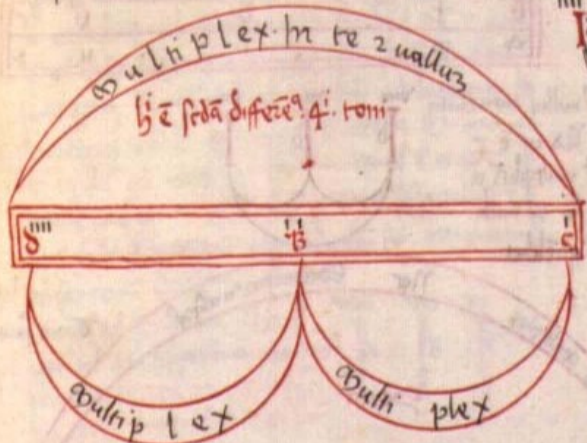 Multiplex · In te r uallum
h^i ē scdā differēa 4^i toni
d B c
Multip l ex Multi plex